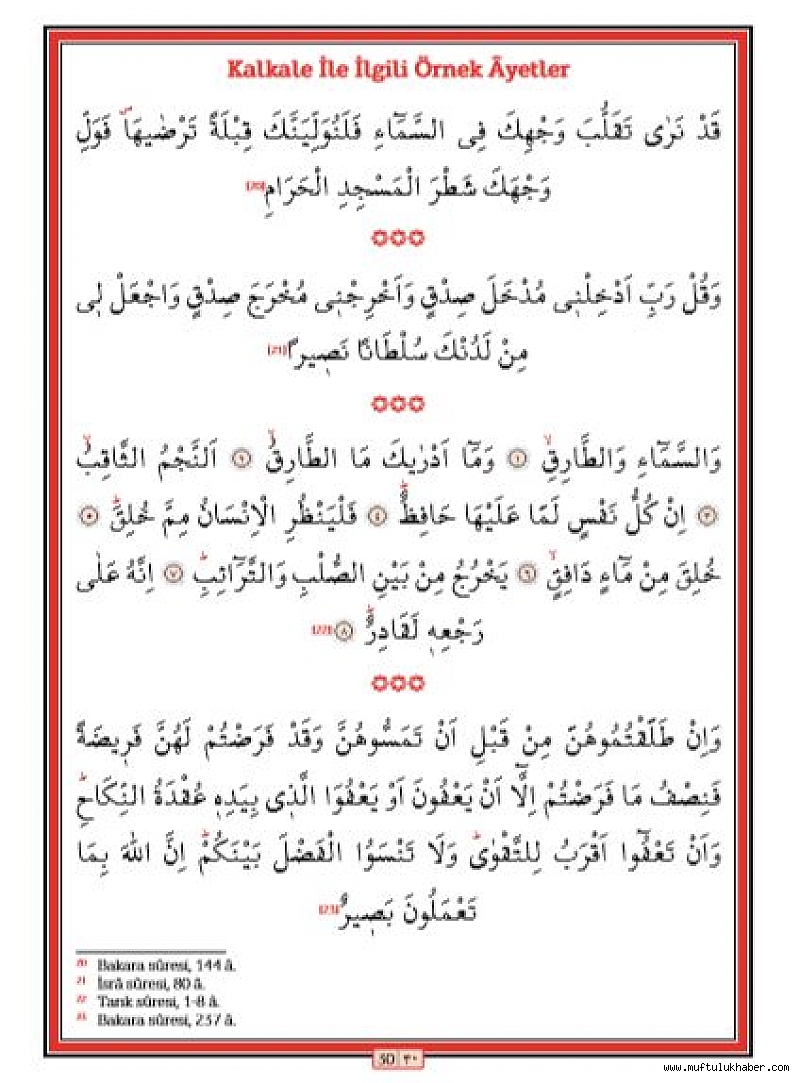 Kalkale İle İlgili Örnek Âyetler
قَدْ نَرٰى تَقَلُّبَ وَجْهِكَ فِى السَّمَٓاءِ فَلَنُوَلِّيَنَّكَ قِبْلَةً تَرْضٰيهَاۖ فَوَلِّ
وَجْهَكَ شَطْرَ الْمَسْجِدِ الْحَرَامِ [20]
وَقُلْ رَبِّ اَدْخِلْنٖى مُدْخَلَ صِدْقٍ وَاَخْرِجْنٖى مُخْرَجَ صِدْقٍ وَاجْعَلْ لٖى
مِنْ لَدُنْكَ سُلْطَانًا نَصٖيرًا [21]
وَالسَّمَٓاءِ وَالطَّارِقِۙ ﴿١﴾ وَمَٓا اَدْرٰيكَ مَا الطَّارِقُۙ ﴿٢﴾ اَلنَّجْمُ الثَّاقِبُۙ
﴿٣﴾ اِنْ كُلُّ نَفْسٍ لَمَّا عَلَيْهَا حَافِظٌؕ ﴿٤﴾ فَلْيَنْظُرِ الْاِنْسَانُ مِمَّ خُلِقَؕ ﴿٥﴾
خُلِقَ مِنْ مَٓاءٍ دَافِقٍۙ ﴿٦﴾ يَخْرُجُ مِنْ بَيْنِ الصُّلْبِ وَالتَّرَٓائِبِؕ ﴿٧﴾ اِنَّهُ عَلٰى
رَجْعِهٖ لَقَادِرٌؕ ﴿٨﴾ [22]
وَاِنْ طَلَّقْتُمُوهُنَّ مِنْ قَبْلِ اَنْ تَمَسُّوهُنَّ وَقَدْ فَرَضْتُمْ لَهُنَّ فَرٖيضَةً
فَنِصْفُ مَا فَرَضْتُمْ اِلَّٓا اَنْ يَعْفُونَ اَوْ يَعْفُوَا الَّذٖى بِيَدِهٖ عُقْدَةُ النِّكَاحِؕ
وَاَنْ تَعْفُٓوا اَقْرَبُ لِلتَّقْوٰىؕ وَلَا تَنْسَوُا الْفَضْلَ بَيْنَكُمْؕ اِنَّ اللّٰهَ بِمَا
تَعْمَلُونَ بَصٖيرٌ [23]
20 Bakara sûresi, 144 â.
21 İsrâ sûresi, 80 â.
22 Tarık sûresi, 1-8 â.
23 Bakara sûresi, 237 â.
30 ٣٠
www.muftulukhaber.com